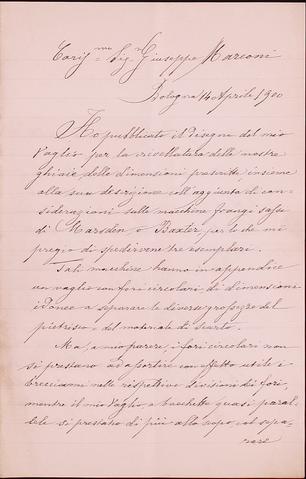 Caris.mo Sig.r Giuseppe Marconi
Bologna 14 Aprile 1900
Ho pubblicato il disegno del mio
Vaglio per la crivellatura delle nostre
ghiaie delle dimensioni prescritte insieme
alla sua descrizione coll'aggiunta di con-
siderazioni sulle macchine frangi sassi
di Marsden o Baxter, per lo che mi
pregio di spedirvene tre esemplari.
Tali macchine hanno in appendice
un vaglio con fori circolari di dimensioni
idonee a separare le diverse grossezze del
pietrisco e del materiale di scarto.
Ma, a mio parere, i fori circolari non
si prestano ad assortire con effetto utile i
brecciami nelle rispettive divisioni dei fori,
mentre il mio Vaglio, a bacchette quasi paral-
lele si prestano di più allo scopo, col sepa-
rare